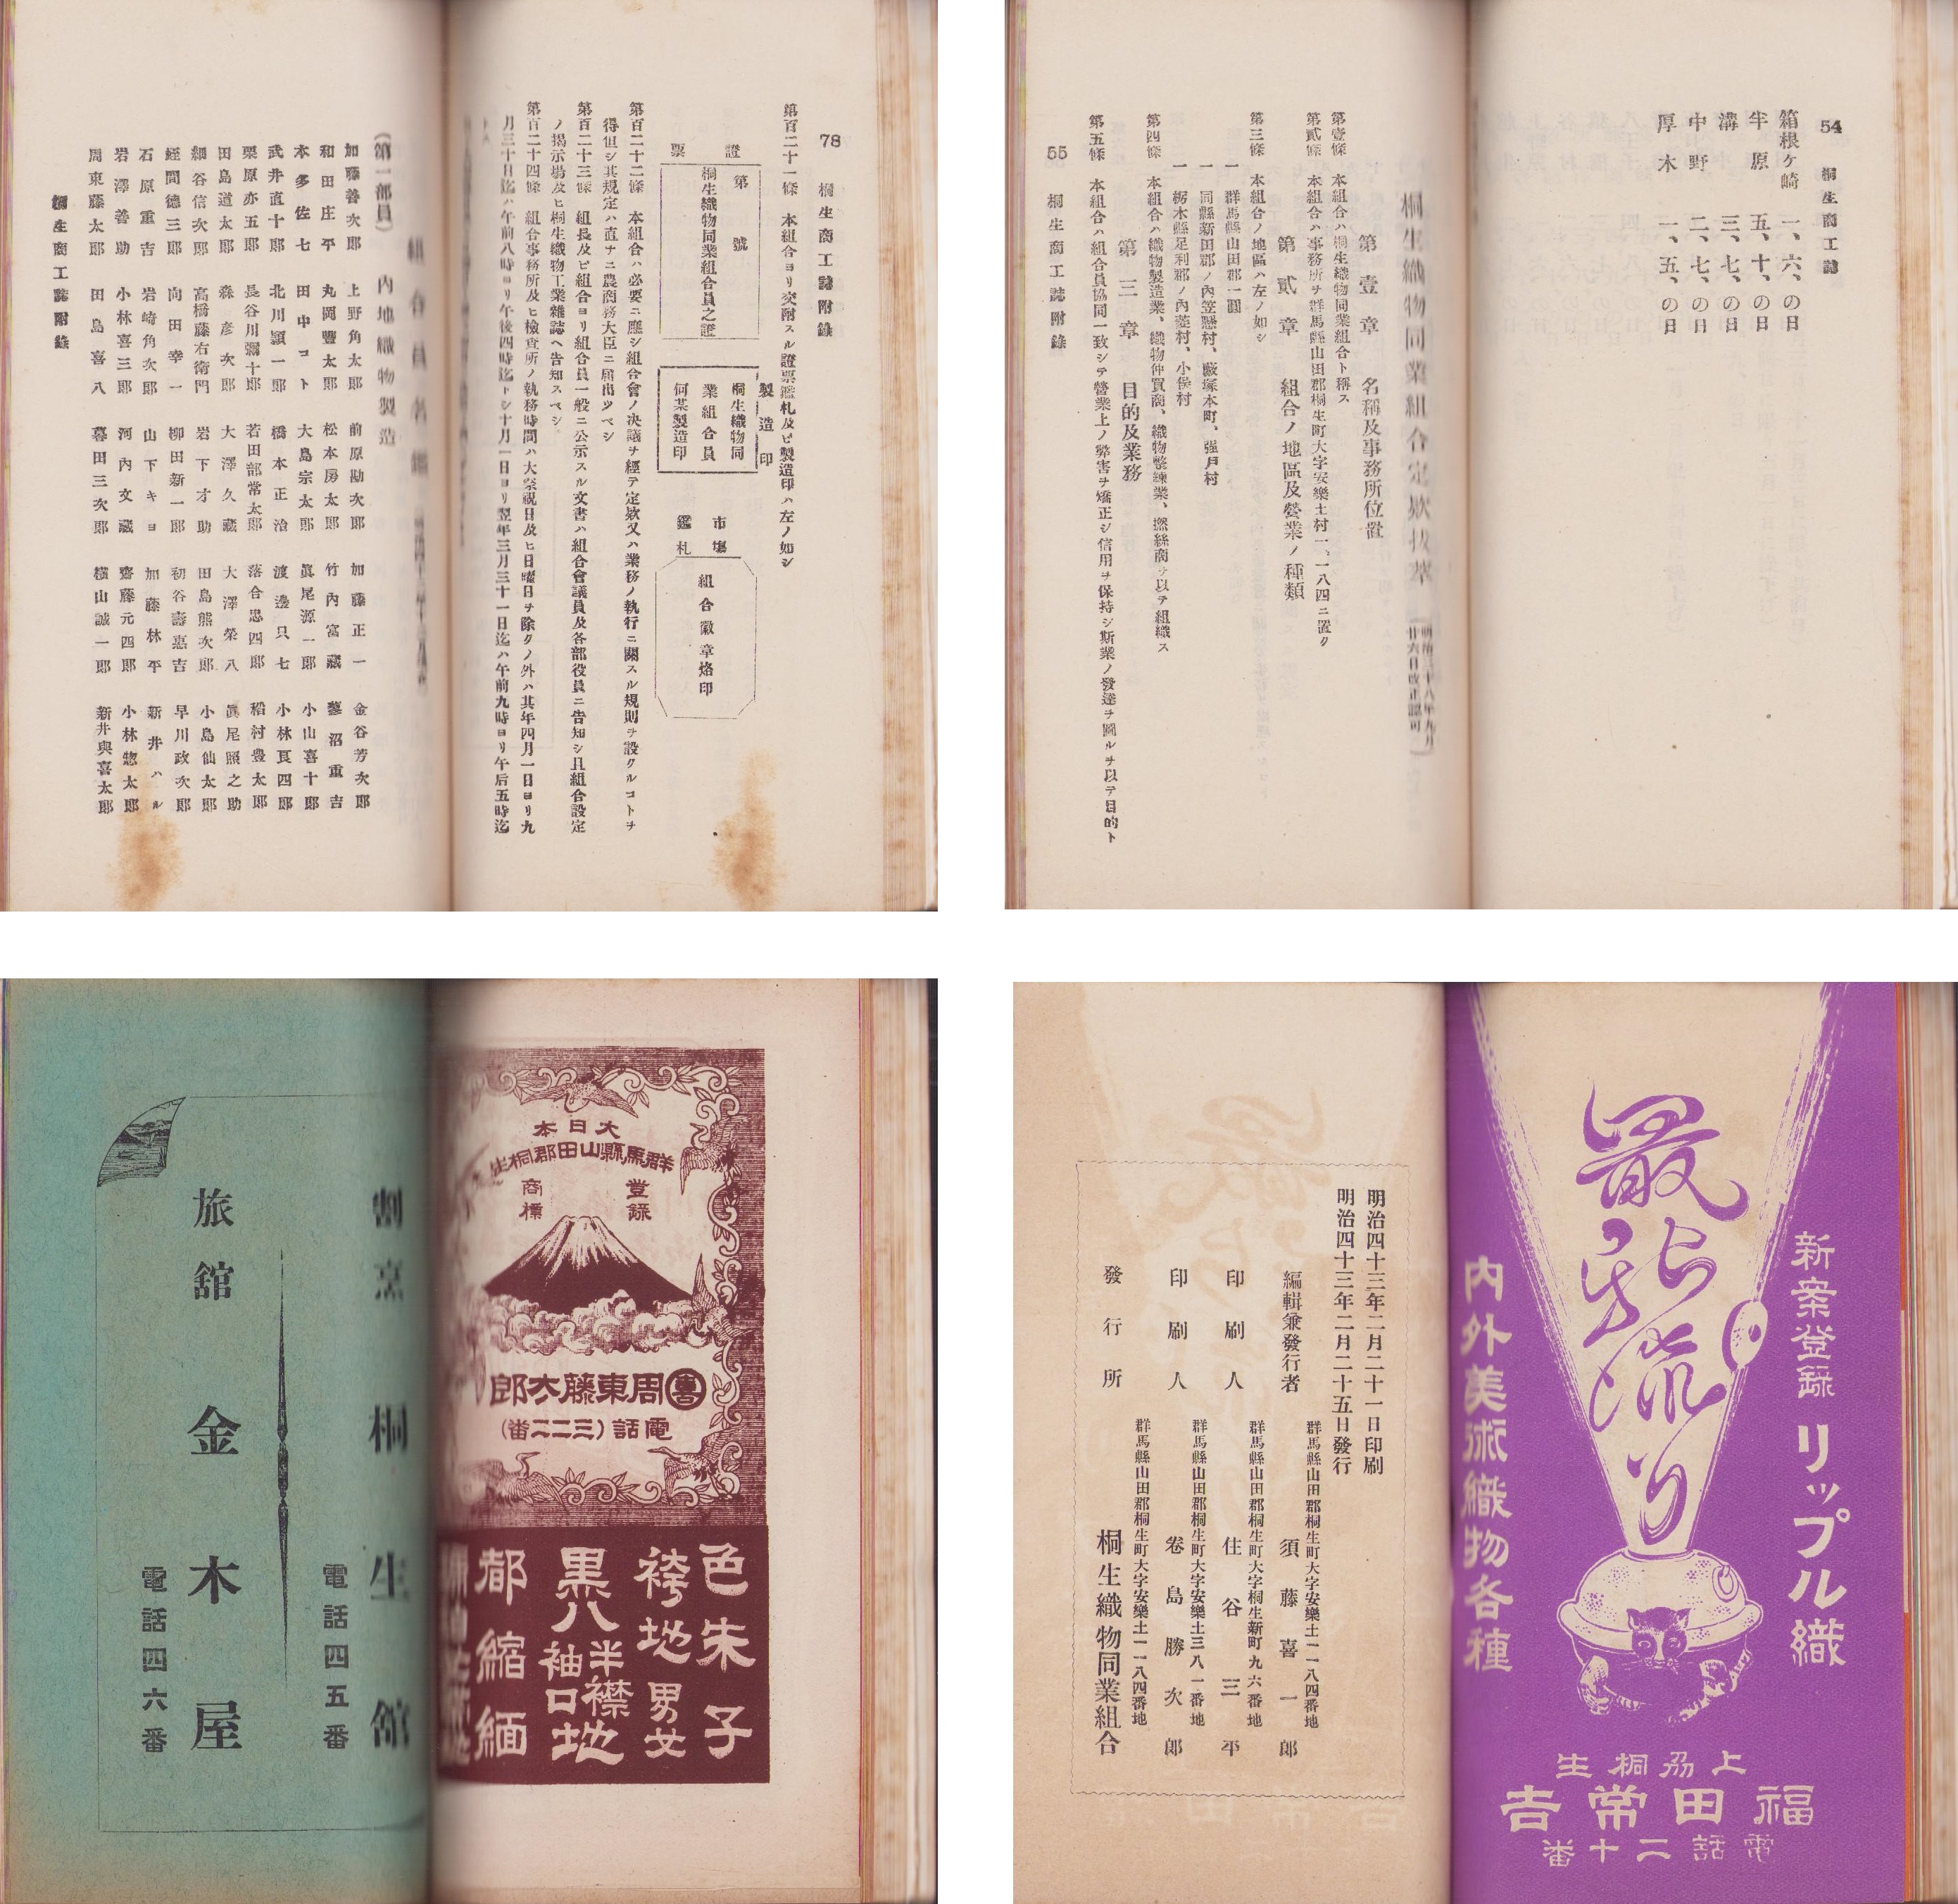 78
桐生商工誌附錄
第百二十一條　本組合ヨリ交附スル證票鑑札及ビ製造印ハ左ノ如シ
證票
第　號
桐生織物同業組合員之證
製造印
桐生織物同
業組合員
何某製造印
市場
鑑札
組合徽章烙印
第百二十二條　本組合ハ必要ニ應シ組合會ノ決議ヲ經テ定欵又ハ業務ノ執行ニ關スル規則ヲ設クルコトヲ
得但シ其規定ハ直チニ農商務大臣ニ屆出ツベシ
第百二十三條　組長及ビ組合ヨリ組合員一般ニ公示スル文書ハ組合會議員及各部役員ニ告知シ且組合設定
ノ揭示場及ヒ桐生織物工業雜誌ヘ告知スベシ
第百二十四條　組合事務所及ヒ檢查所ノ執務時間ハ大祭祝日及ヒ日曜日ヲ除クノ外ハ其年四月一日ヨリ九
月三十日迄ハ午前八時ヨリ午後四時迄トシ十月一日ヨリ翌年三月三十一日迄ハ午前九時ヨリ午后五時迄
組合員名
(第一部員)　內地織物製造
加藤善次郎　上野角太郎　前原勘次郎　加藤正一　金谷芳次郎
和田庄平　丸岡豐太郎　松本房太郎　竹內富藏　蓼沼重吉
本多佐七　田中コト　大島宗太郎　眞尾源一郎　小山喜十郎
武井直十郎　北川頴一郎　橋本正治　渡邊只七　小林良四郎
栗原亦五郎　長谷川彌十郎　若田部常太郎　落合忠四郎　稻村豊太郎
田島道太郎　森彥次郎　大澤久藏　大澤榮八　眞尾照之助
細谷信次郎　高橋藤右衛門　岩下才助　田島熊次郎　小島仙太郎
蛭間德三郎　向田幸一　柳田新一郎　初谷壽惠吉　早川政次郎
石原重吉　岩崎角次郎　山下キヨ　加藤林平　新井ハル
岩澤善助　小林喜三郎　河內文藏　齋藤元四郎　小林惣太郎
周東藤太郎　田島喜八　暮田三次郎　橫山誠一郎　新井與喜太郎
桐生商工誌附錄
54
桐生商工誌
箱根ヶ崎　一、六、の日
半原　五、十、の日
溝　三、七、の日
中野　二、七、の日
厚木　一、五、の日
桐生織物同業組合定欵拔萃
明治三十八年九月
廿六日改正認可
第壹章　名稱及事務所位置
第壹條　本組合ハ桐生織物同業組合ト稱ス
第貳條　本組合ハ事務所ヲ群馬縣山田郡桐生町大字安樂土村一、一八四ニ置ク
第貳章　組合ノ地區及營業ノ種類
第三條　本組合ノ地區ハ左ノ如シ
一　群馬縣山田郡一圓
一　同縣新田郡ノ內笠懸村、藪塚本町、强戶村
一　栃木縣足利郡ノ內菱村、小俣村
第四條　本組合ハ織物製造業、織物仲買商、織物整練業、撚絲商ヲ以テ組織ス
第三章　目的及業務
第五條　本組合ハ組合員協同一致シテ營業上ノ弊害ヲ矯正シ信用ヲ保持シ斯業ノ發達ヲ圖ルヲ以テ目的ト
55
桐生商工誌附錄
大日本
群馬縣山田郡桐生
登錄
商標
喜
周東藤太郎
電話(三二二番)
色朱子
袴地男女
黒八半襟地
袖口
都縮緬
割烹　桐生館
電話四五番
旅舘　金木屋
電話四六番
新案登録　リップル織
最近流行
內外美術織物各種
上刕桐生
福田常吉
電話二十番
明治四十三年二月二十一日印刷
明治四十三年二月二十五日發行
群馬縣山田郡桐生町大字安樂土一一八四番地
編輯兼發行者　須藤喜一郎
群馬縣山田郡桐生町大字桐生新町九六番地
印刷人　住谷三平
群馬縣山田郡桐生町大字安樂土三八一番地
印刷人　卷島勝次郎
群馬縣山田郡桐生町大字安樂土一一八四番地
發行所　桐生織物同業組合